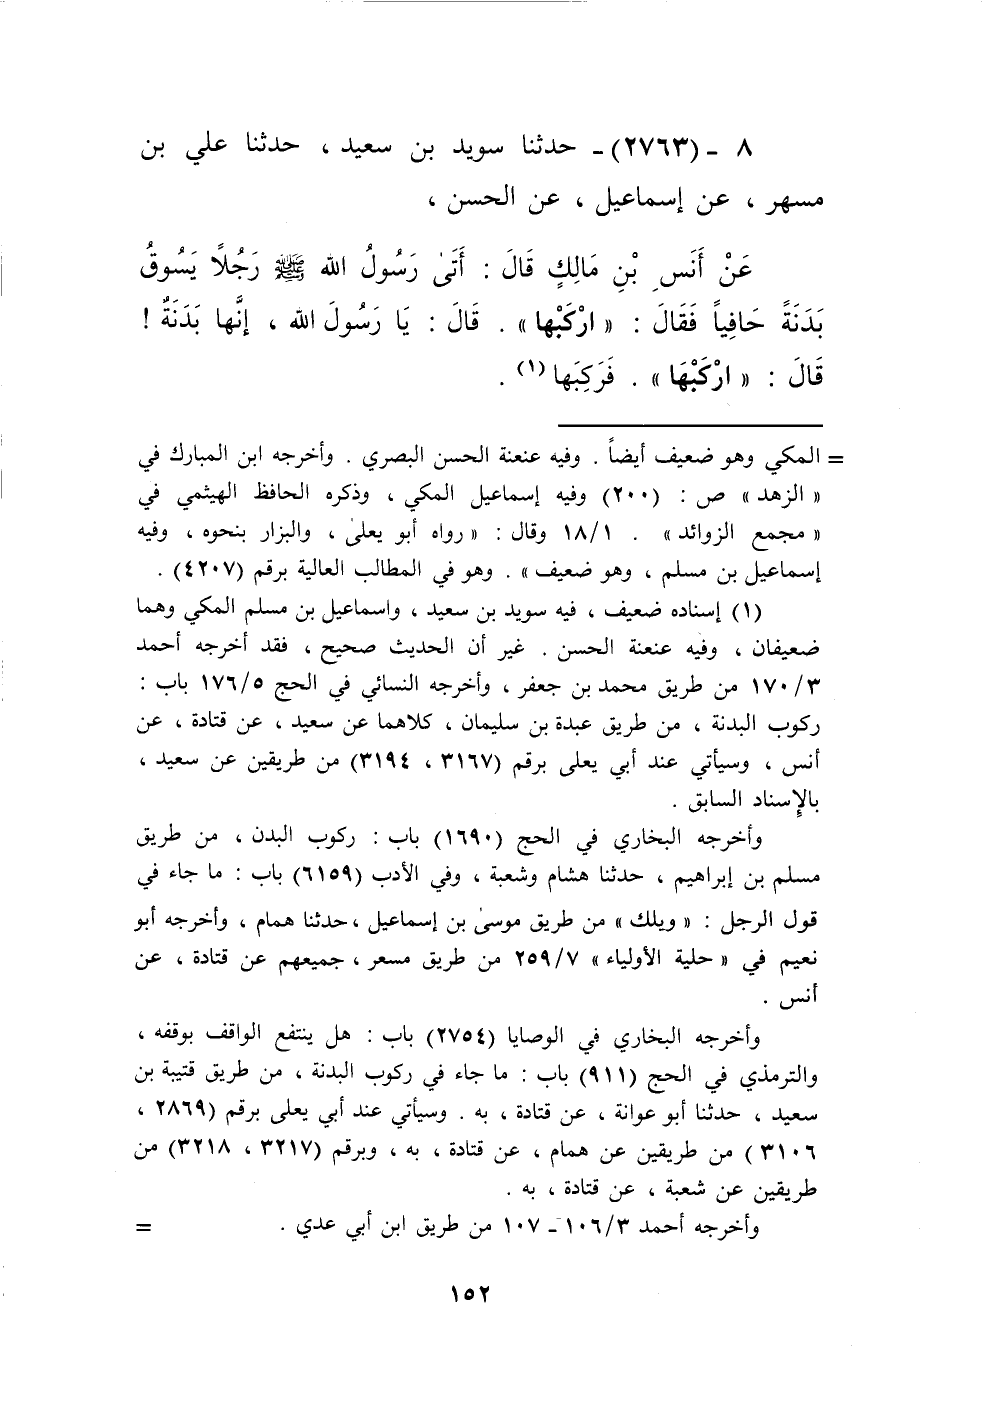 ٨ ـ (٢٧٦٣) ـ حدثنا سويد بن سعيد ، حدثنا علي بن
مسهر ، عن إسماعيل ، عن الحسن ،
عَنْ أَنَسِ بْنِ مَالِكٍ قَالَ : أَتَىٰ رَسُولُ الله ﷺ رَجُلاً يَسُوقُ
بَدَنَةً حَافِياً فَقَالَ : « ارْكَبْها » . قَالَ : يَا رَسُولَ الله ، إنَّها بَدَنَةٌ !
قَالَ : « ارْكَبْهَا » . فَرَكِبَها (١) .
= المكي وهو ضعيف أيضاً . وفيه عنعنة الحسن البصري . وأخرجه ابن المبارك في
« الزهد » ص : (٢٠٠) وفيه إسماعيل المكي ، وذكره الحافظ الهيثمي في
« مجمع الزوائد » . ١٨/١ وقال : « رواه أبو يعلىٰ ، والبزار بنحوه ، وفيه
إسماعيل بن مسلم ، وهو ضعيف » . وهو في المطالب العالية برقم (٤٢٠٧) .
(١) إسناده ضعيف ، فيه سويد بن سعيد ، واسماعيل بن مسلم المكي وهما
ضعيفان ، وفيه عنعنة الحسن . غير أن الحديث صحيح ، فقد أخرجه أحمد
١٧٠/٣ من طريق محمد بن جعفر ، وأخرجه النسائي في الحج ١٧٦/٥ باب :
ركوب البدنة ، من طريق عبدة بن سليمان ، كلاهما عن سعيد ، عن قتادة ، عن
أنس ، وسيأتي عند أبي يعلى برقم (٣١٦٧ ، ٣١٩٤) من طريقين عن سعيد ،
بالإسناد السابق .
وأخرجه البخاري في الحج (١٦٩٠) باب : ركوب البدن ، من طريق
مسلم بن إبراهيم ، حدثنا هشام وشعبة ، وفي الأدب (٦١٥٩) باب : ما جاء في
قول الرجل : « ويلك » من طريق موسىٰ بن إسماعيل ، حدثنا همام ، وأخرجه أبو
نعيم في « حلية الأولياء » ٢٥٩/٧ من طريق مسعر ، جميعهم عن قتادة ، عن
أنس .
وأخرجه البخاري في الوصايا (٢٧٥٤) باب : هل ينتفع الواقف بوقفه ،
والترمذي في الحج (٩١١) باب : ما جاء في ركوب البدنة ، من طريق قتيبة بن
سعيد ، حدثنا أبو عوانة ، عن قتادة ، به . وسيأتي عند أبي يعلى برقم (٢٨٦٩ ،
٣١٠٦ ) من طريقين عن همام ، عن قتادة ، به ، وبرقم (٣٢١٧ ، ٣٢١٨) من
طريقين عن شعبة ، عن قتادة ، به .
وأخرجه أحمد ١٠٦/٣ ـ ١٠٧ من طريق ابن أبي عدي . =
١٥٢